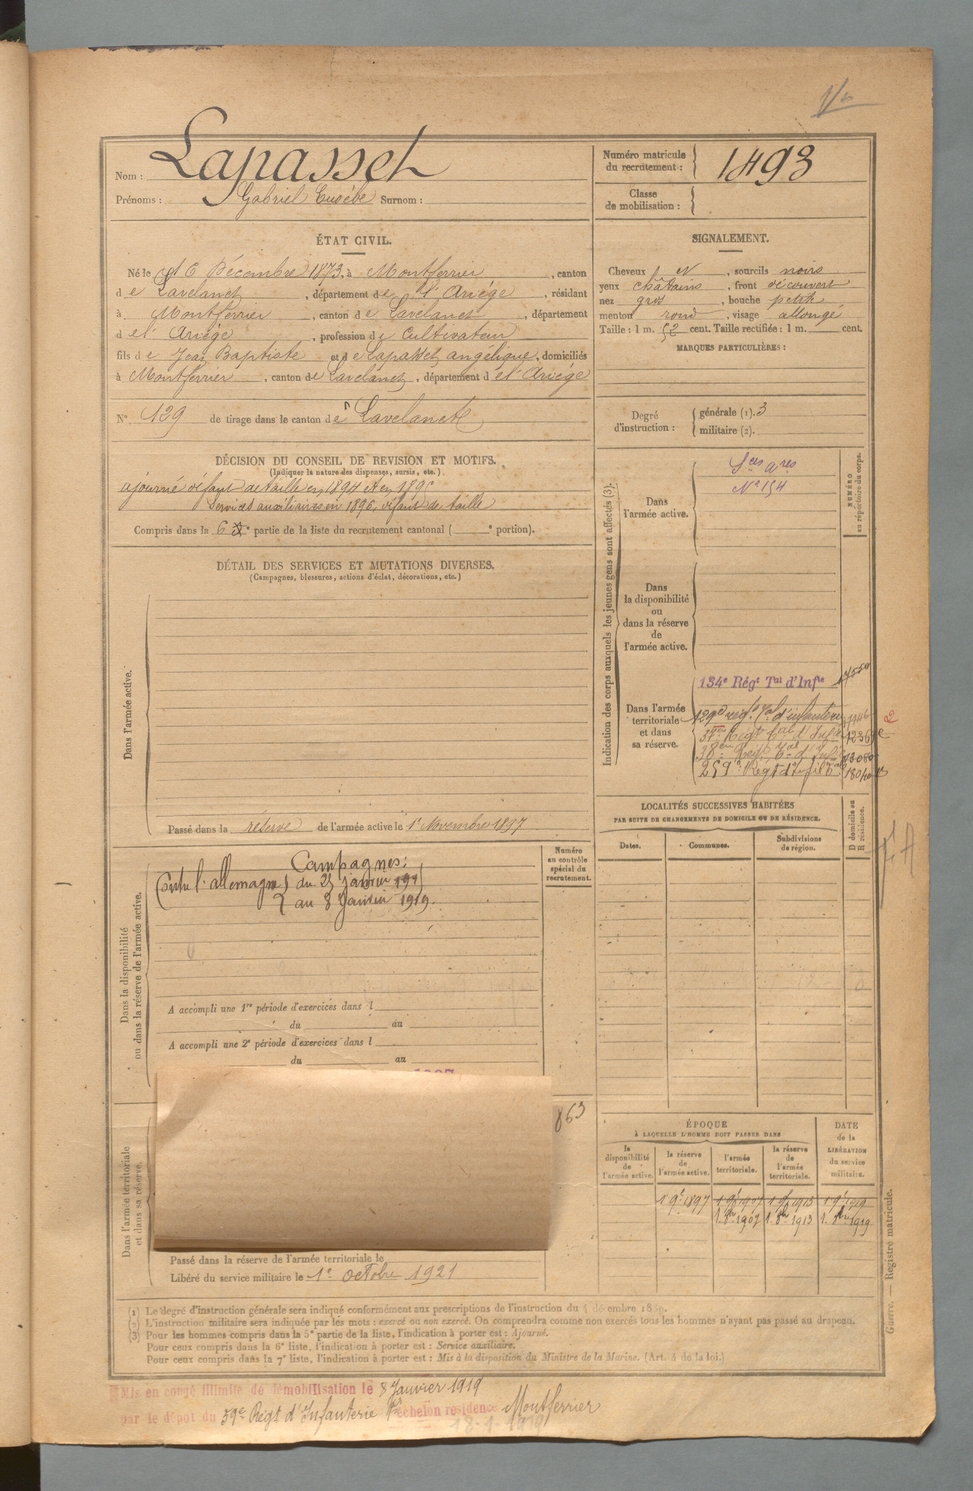 Nom : Lapasset
Prénoms : Gabriel Eusèbe Surnom :
Numéro matricule du recrutement : 1493
Classe de mobilisation :
ÉTAT CIVIL.
Né le 16 Décembre 1873, à Montferrier, canton
de Lavelanet, département de l'Ariége, résidant
à Montferrier, canton de Lavelanet, département
de l'Ariége, profession de Cultivateur
fils de Jean Baptiste et de Lapasset angélique, domiciliés
à Montferrier, canton de Lavelanet, département de l'Ariége
N° 129 de tirage dans le canton de Lavelanet
SIGNALEMENT.
Cheveux N, sourcils noirs
yeux châtains, front découvert
nez gros, bouche petite
menton rond, visage allongé
Taille : 1 m. 52 cent. Taille rectifiée : 1 m. cent.
MARQUES PARTICULIÈRES :
Degré d'instruction : générale (1). 3
militaire (2).
DÉCISION DU CONSEIL DE REVISION ET MOTIFS.
(Indiquer la nature des dispenses, sursis, etc.)
ajourné défaut de taille en 1894 et en 1895
Services auxiliaires en 1896, défaut de taille
Compris dans la 6e partie de la liste du recrutement cantonal ( e portion).
DÉTAIL DES SERVICES ET MUTATIONS DIVERSES.
(Campagnes, blessures, actions d'éclat, décorations, etc.)
Dans l'armée active.
Passé dans la réserve de l'armée active le 1er Novembre 1897
Indication des corps auxquels les jeunes gens sont affectés (3).
NUMÉRO au répertoire du corps.
Dans l'armée active.
Sces ares
N° 154
Dans la disponibilité ou dans la réserve de l'armée active.
Dans l'armée territoriale et dans sa réserve.
134e Régt Tal d'Infie
129e régt tal d'infanterie
259e Régt d'Inf
LOCALITÉS SUCCESSIVES HABITÉES
PAR SUITE DE CHANGEMENTS DE DOMICILE OU DE RÉSIDENCE.
Dates.
Communes.
Subdivisions de région.
D domicile ou R résidence.
Dans la disponibilité ou dans la réserve de l'armée active.
Numéro au contrôle spécial du recrutement.
Campagnes :
Contre l'allemagne du 25 janvier 191
au 8 Janvier 1919.
A accompli une 1re période d'exercices dans l
du au
A accompli une 2e période d'exercices dans l
du au
863
Dans l'armée territoriale et dans sa réserve.
Passé dans la réserve de l'armée territoriale le
Libéré du service militaire le 1er octobre 1921
ÉPOQUE
À LAQUELLE L'HOMME DOIT PASSER DANS
la disponibilité de l'armée active.
la réserve de l'armée active.
l'armée territoriale.
la réserve de l'armée territoriale.
DATE de la LIBÉRATION du service militaire.
1 9bre 1897 1 9bre 1907 1 9bre 1913 1 9bre 1919
1. 8bre 1907 1. 8bre 1913 1. 8bre 1919
Guerre. — Registre matricule.
(1) Le degré d'instruction générale sera indiqué conformément aux prescriptions de l'instruction du 4 décembre 1889.
(2) L'instruction militaire sera indiquée par les mots : exercé ou non exercé. On comprendra comme non exercés tous les hommes n'ayant pas passé au drapeau.
(3) Pour les hommes compris dans la 5e partie de la liste, l'indication à porter est : Ajourné.
Pour ceux compris dans la 6e liste, l'indication à porter est : Service auxiliaire.
Pour ceux compris dans la 7e liste, l'indication à porter est : Mis à la disposition du Ministre de la Marine. (Art. 4 de la loi.)
Mis en congé illimité de démobilisation le 8 Janvier 1919
par le dépôt du 39e Régt d'Infanterie échelon résidence Montferrier